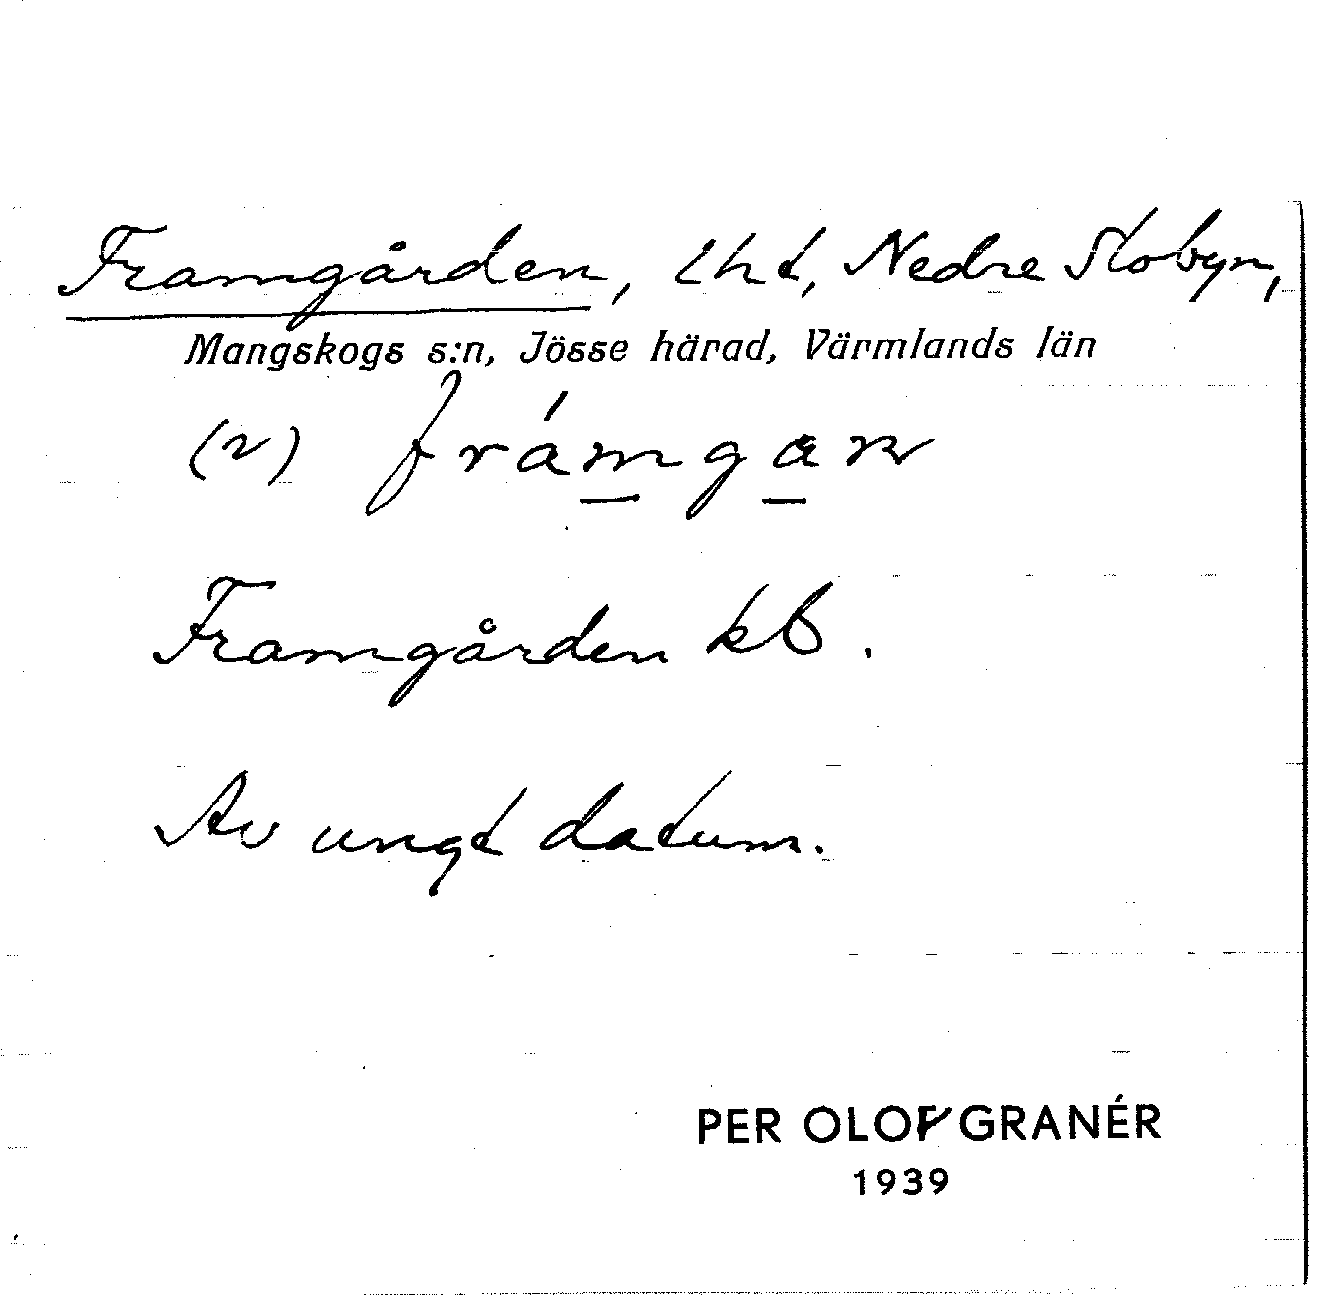 Framgården, lht, Nedre Slobyn,
Mangskogs s:n, Jösse härad, Värmlands län
(2) frámgan
Framgården kb.
Av ungt datum.
PER OLOF GRANÉR
1939